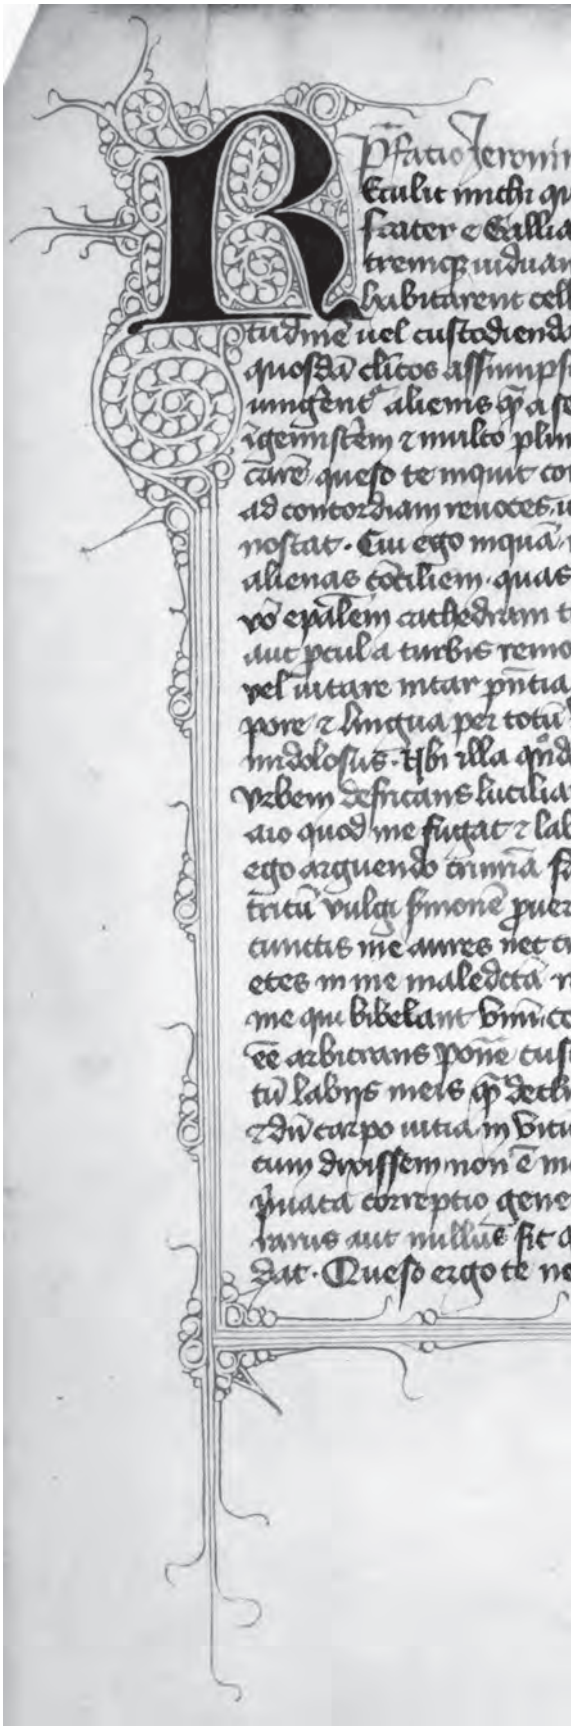 P̄fatio Jeronim
R Etulit michi qu
frater e Gallia
tremq; uiduam
habitarent cell
tudinē uel custodienda
quosdā cl̄icos assumpsi
iungēnt᷑ alienis q̄ a se
īgemiscēm ⁊ multo plur
carē queso te inquit cor
ad concordiam reuoces u
noscat. Cui ego inquā
alienas cōciliem. quas
vō ep̄alem cathedram t
aut ꝓcul a turbis remo
vel uitare intar p̄ntia
pore ⁊ lingua per totū
nudolosus. Ubi illa qn̄dā
vrbem defricans lucilia
aio quod me fugat ⁊ lab
ego arguendo crimīa fa
tritū vulgi s̄monē ꝓuer
cunctis me aures nec t
etes in me maledicta r
me qui bibebant vinū ce
ēē arbitrans Pone cus
tū labijs meis q̄ decli
⁊ dū carpo uitia in vitiū
cum dixissem non ē m
p̄uata correptio gene
rarus aut nullus sit q
dat. Queso ergo te ne